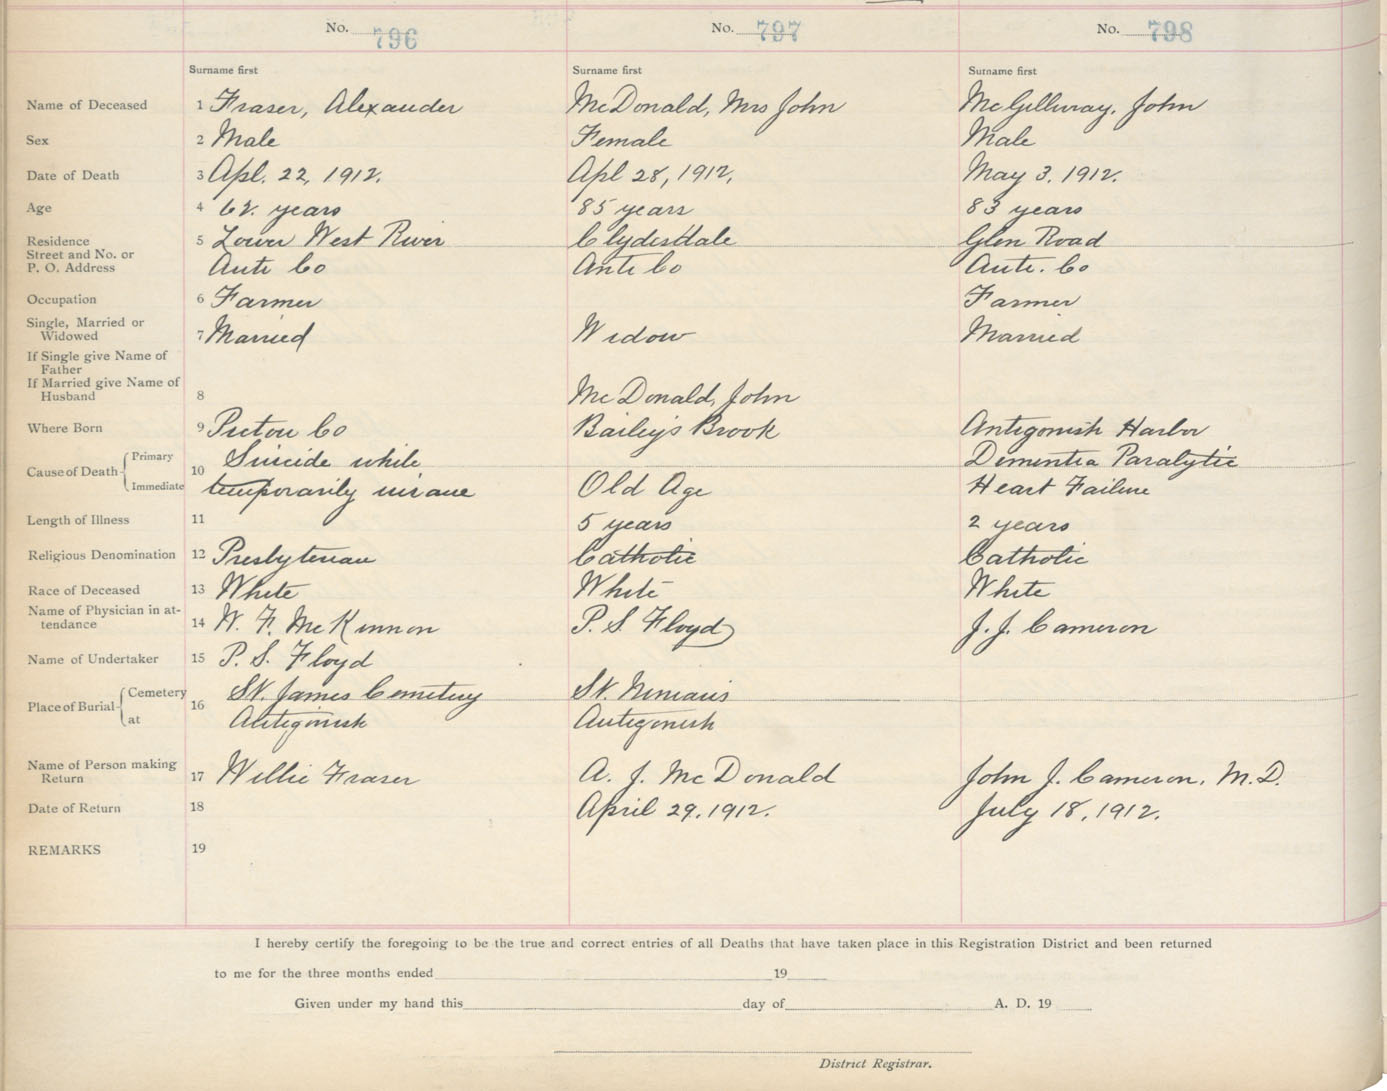 No. 796 No. 797 No. 798
Surname first Surname first Surname first
Name of Deceased 1 Fraser, Alexander McDonald, Mrs John McGillivray, John
Sex 2 Male Female Male
Date of Death 3 Apl. 22, 1912. Apl 28, 1912, May 3, 1912.
Age 4 62 years 85 years 83 years
Residence 5 Lower West River Clydesdale Glen Road
Street and No. or
P. O. Address Ante Co Ante Co Ante. Co
Occupation 6 Farmer Farmer
Single, Married or
Widowed 7 Married Widow Married
If Single give Name of
Father
If Married give Name of
Husband 8 McDonald, John
Where Born 9 Pictou Co Bailey's Brook Antigonish Harbor
Primary Suicide while Dementia Paralytic
Cause of Death 10
Immediate temporarily insane Old Age Heart Failure
Length of Illness 11 5 years 2 years
Religious Denomination 12 Presbyterian Catholic Catholic
Race of Deceased 13 White White White
Name of Physician in at-
tendance 14 W. F. McKinnon P. S. Floyd J. J. Cameron
Name of Undertaker 15 P. S. Floyd
Cemetery St. James Cemetery St. Ninian's
Place of Burial 16
at Antigonish Antigonish
Name of Person making
Return 17 Willie Fraser A. J. McDonald John J. Cameron, M.D.
Date of Return 18 April 29, 1912. July 18, 1912.
REMARKS 19
I hereby certify the foregoing to be the true and correct entries of all Deaths that have taken place in this Registration District and been returned
to me for the three months ended 19
Given under my hand this day of A. D. 19
District Registrar.